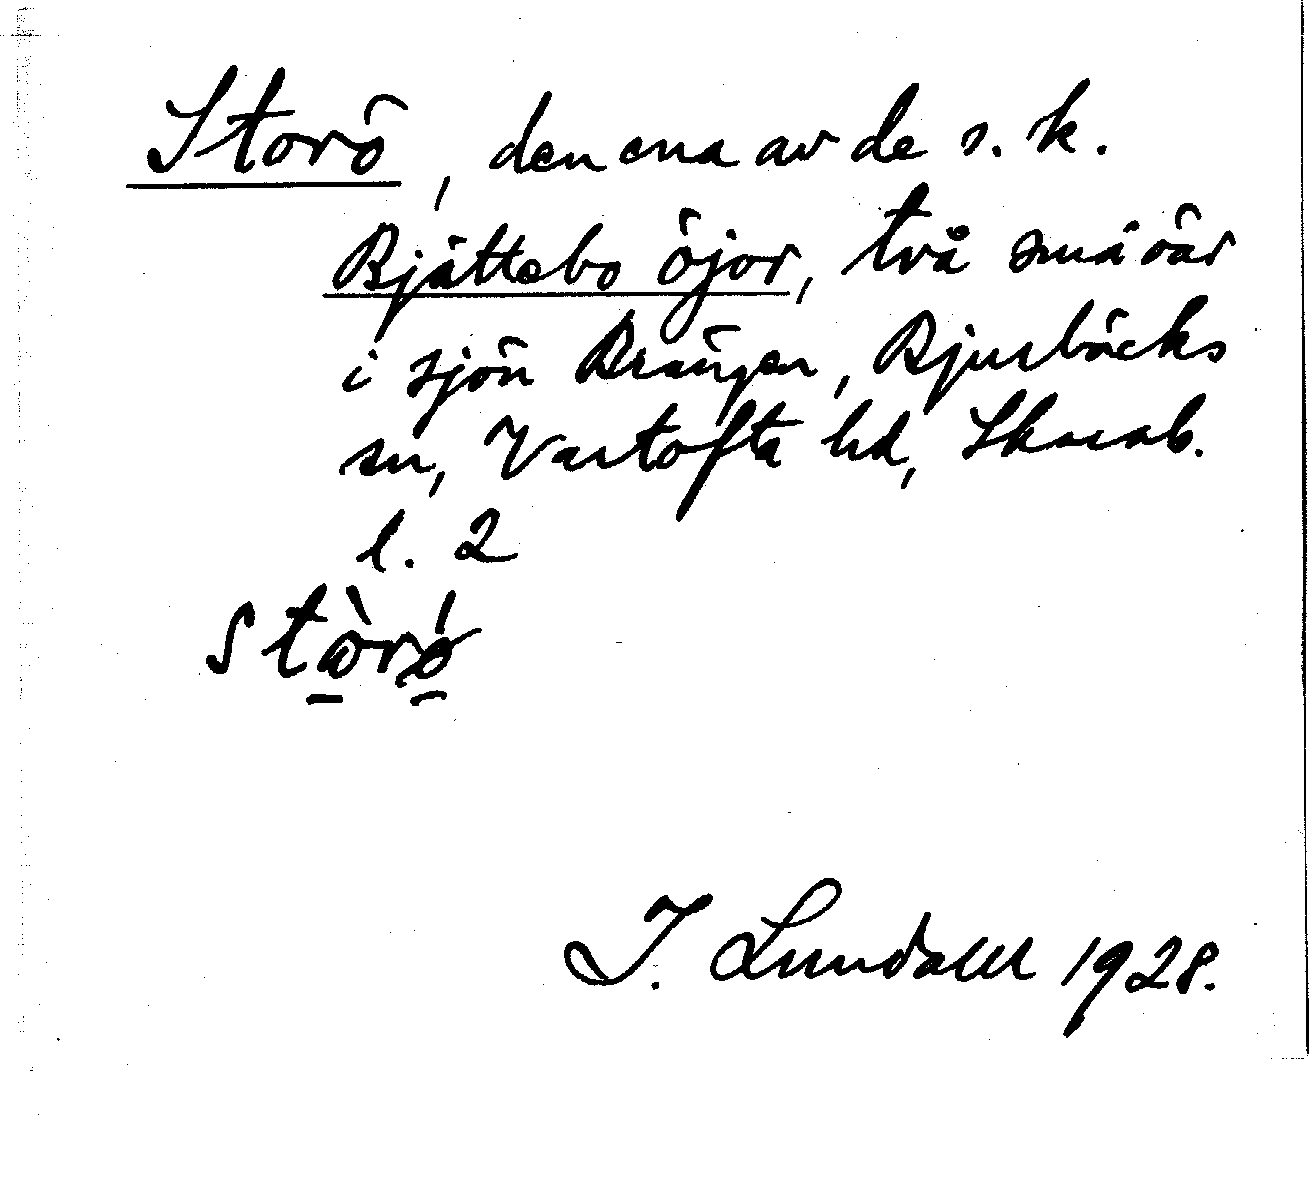 Storö, den ena av de s. k.
Bjättebo öjor, två små öar
i sjön Brängen, Bjurbäcks
sn, Vartofta hd, Skarab.
l. 2
I. Lundahl 1928.